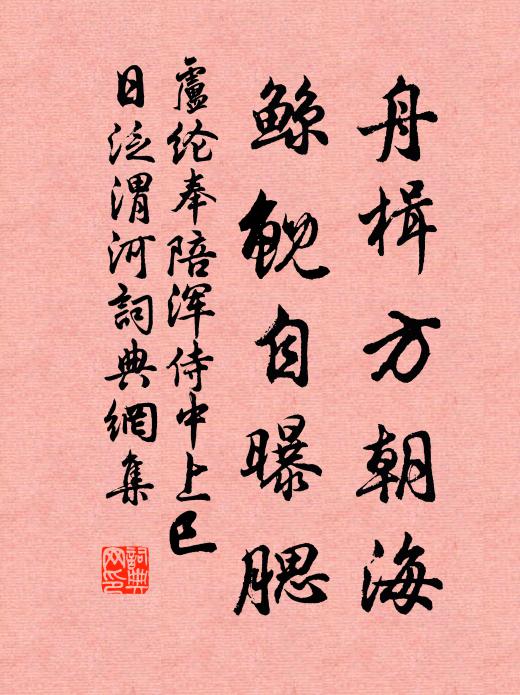 舟楫方朝海
鲸鲵自曝腮
盧纶奉陪浑侍中上巳
日泛渭河詞典網集
詞典网印